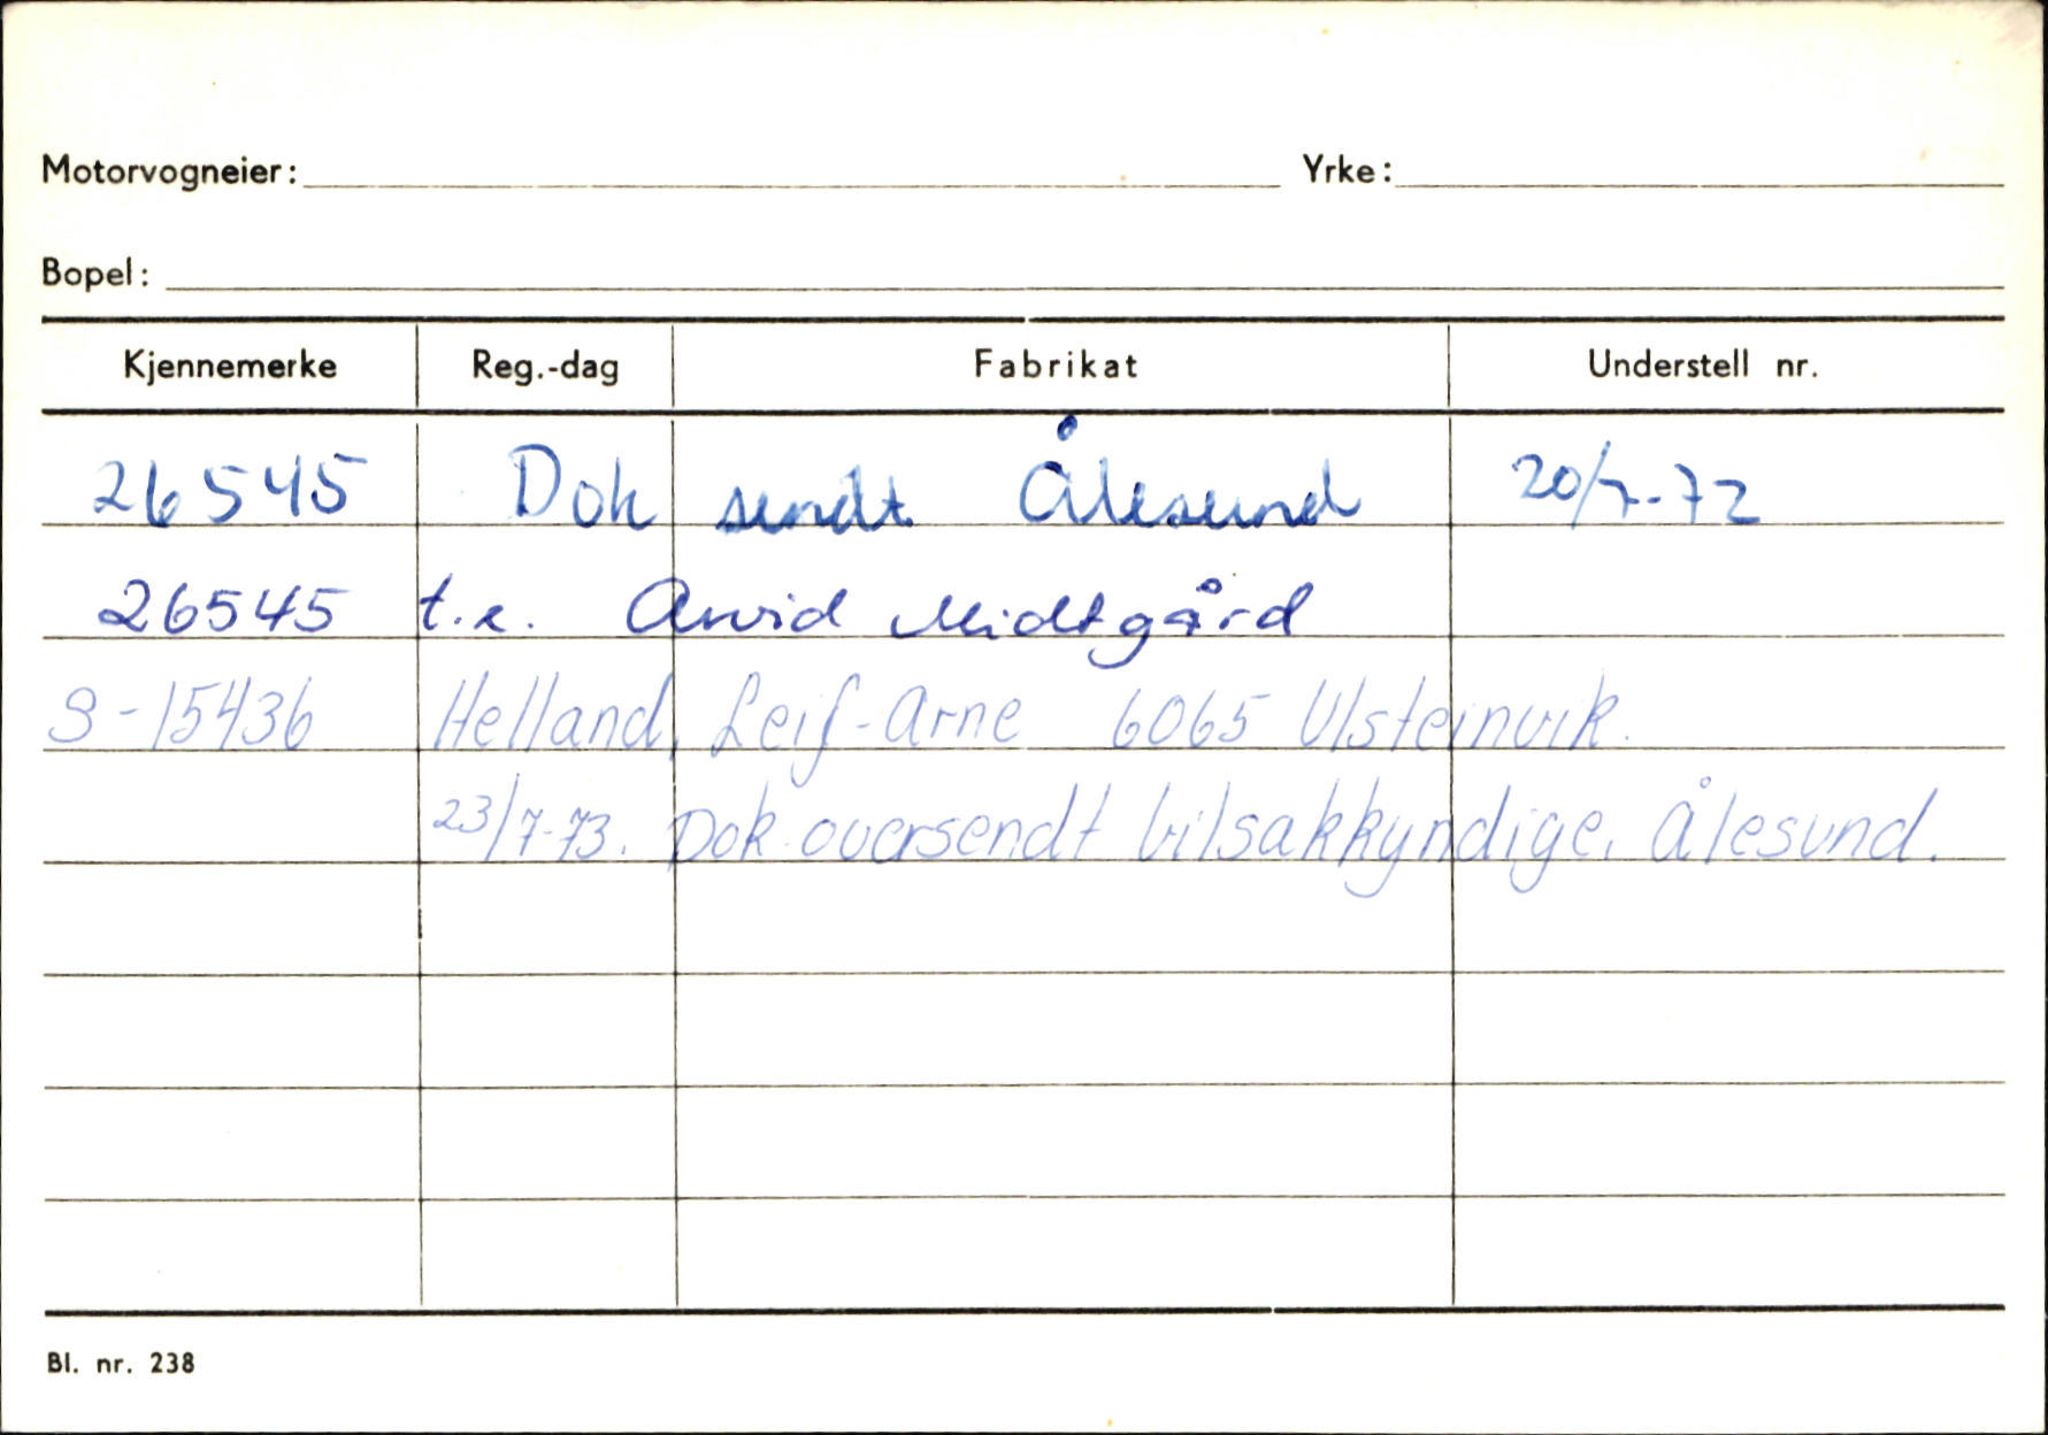 Motorvogneier: Yrke:
Bopel:
Kjennemerke Reg.-dag Fabrikat Understell nr.
26545 Dok sendt Ålesund 20/7-72
26545 t.e. Arvid Midtgård
S-15436 Helland, Leif-Arne 6065 Ulsteinvik.
23/7-73. Dok oversendt bilsakkyndige, Ålesund.
Bl. nr. 238